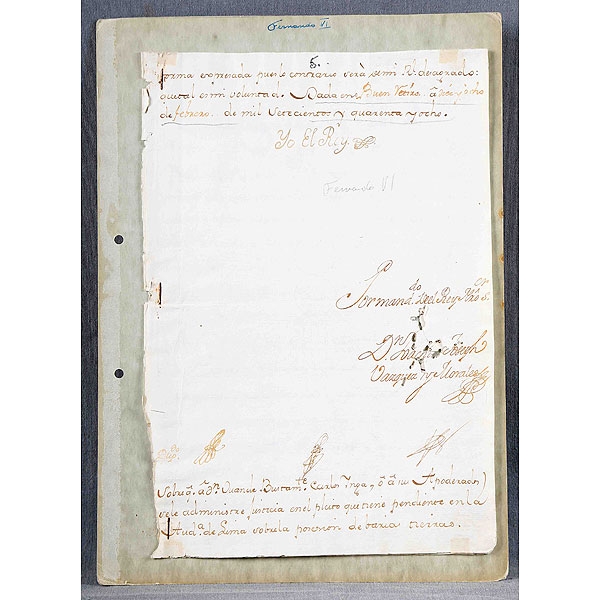 Fernando VI
5.
forma expresada pues lo contrario será de mi Rl. desagrado:
que tal es mi voluntad. Dada en Buen Retiro a diez y ocho
de febrero de mil Setecientos y quarenta y ocho.
Yo El Rey
Fernando VI
Por mando. del Rey Nro Sor.
Dn. Joseph
Vazquez y Morales
Sobre q. a Dn. Juan de Bustamte. Carlos Ynga, o a su Apoderado
se le administre justicia en el pleito que tiene pendiente en la
Auda. de Lima sobre la posesion de varias tierras.